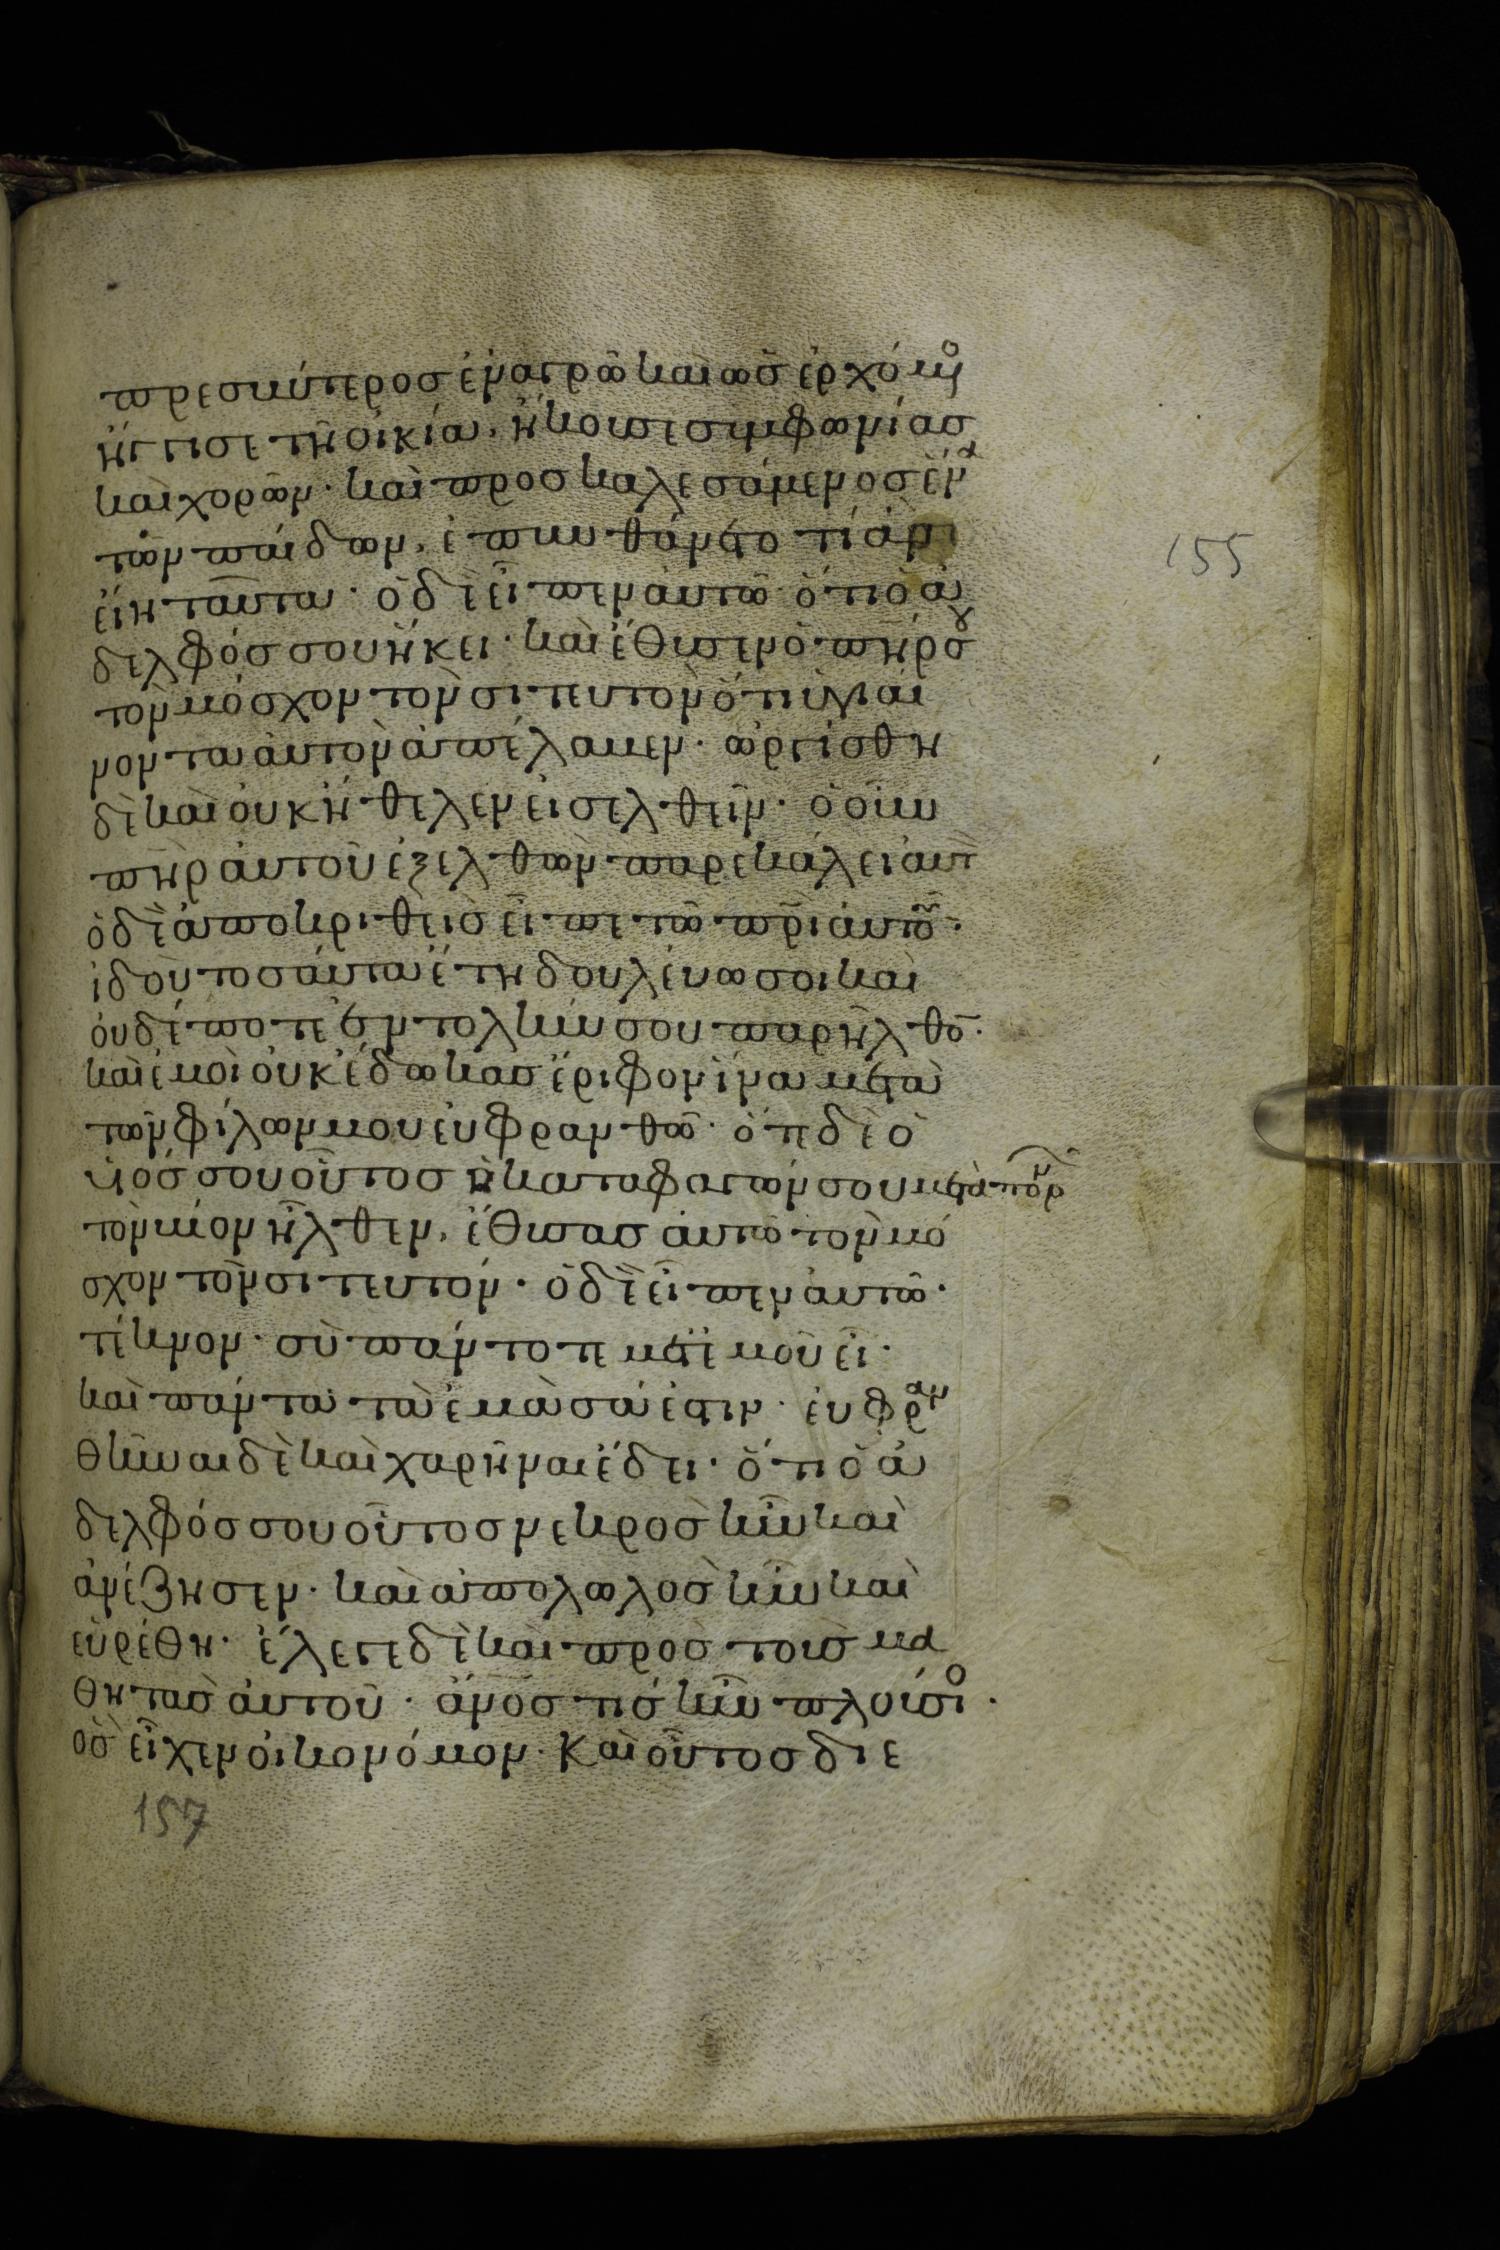 πρεσβύτερος ἐν ἀγρῶ καὶ ὡς ἐρχόμ̊
ἤγγισε τῆ οἰκία, ἤκουσε συμφωνίας
καὶ χορῶν· καὶ προσκαλεσάμενος ἕνα
τῶν παίδων, ἐπυνθάνετο τί ἂν
εἴη ταῦτα· ὁ δὲ εἶπεν αὐτῶ ὅτι ὁ ἀ
δελφός σου ἥκει· καὶ ἔθυσεν ὁ πηρ σου
τὸν μόσχον τὸν σιτευτὸν ὅτι ὑγιαί
νοντα αὐτὸν ἀπέλαβεν· ὠργίσθη
δὲ καὶ οὐκ ἤθελεν εἰσελθεῖν· ὁ οὖν
πηρ αὐτοῦ ἐξελθὼν παρεκάλει αὐτ
ὁ δὲ ἀποκριθεὶς εἶπε τῶ πρι αὐτοῦ·
ἰδοὺ τοσαῦτα ἔτη δουλεύω σοι καὶ
οὐδέποτε ἐντολήν σου παρῆλθο·
καὶ ἐμοὶ οὐκ ἔδωκας ἔριφον ἵνα μετὰ
τῶν φίλων μου εὐφρανθῶ· ὅτε δὲ ὁ
υἱός σου οὗτος ὁ καταφαγών σου μετὰ πορν
τὸν βίον ἦλθεν, ἔθυσας αὐτῶ τὸν μό
σχον τὸν σιτευτόν· ὁ δὲ εἶπεν αὐτῶ·
τέκνον· σὺ πάντοτε μετ ἐμοῦ εἶ·
καὶ πάντα τὰ ἐμὰ σά ἐστιν· εὐφραν
θῆναι δὲ καὶ χαρῆναι ἔδει· ὅτι ὁ ἀ
δελφός σου οὗτος νεκρὸς ἦν καὶ
ἀνέζησεν· καὶ ἀπολωλὸς ἦν καὶ
εὑρέθη· ἔλεγε δὲ καὶ πρὸς τοὺς μα
θητὰς αὐτοῦ· ἄνος τίς ἦν πλούσιο·
ὃς εἶχεν οἰκονόμον· καὶ οὗτος διε
155
157